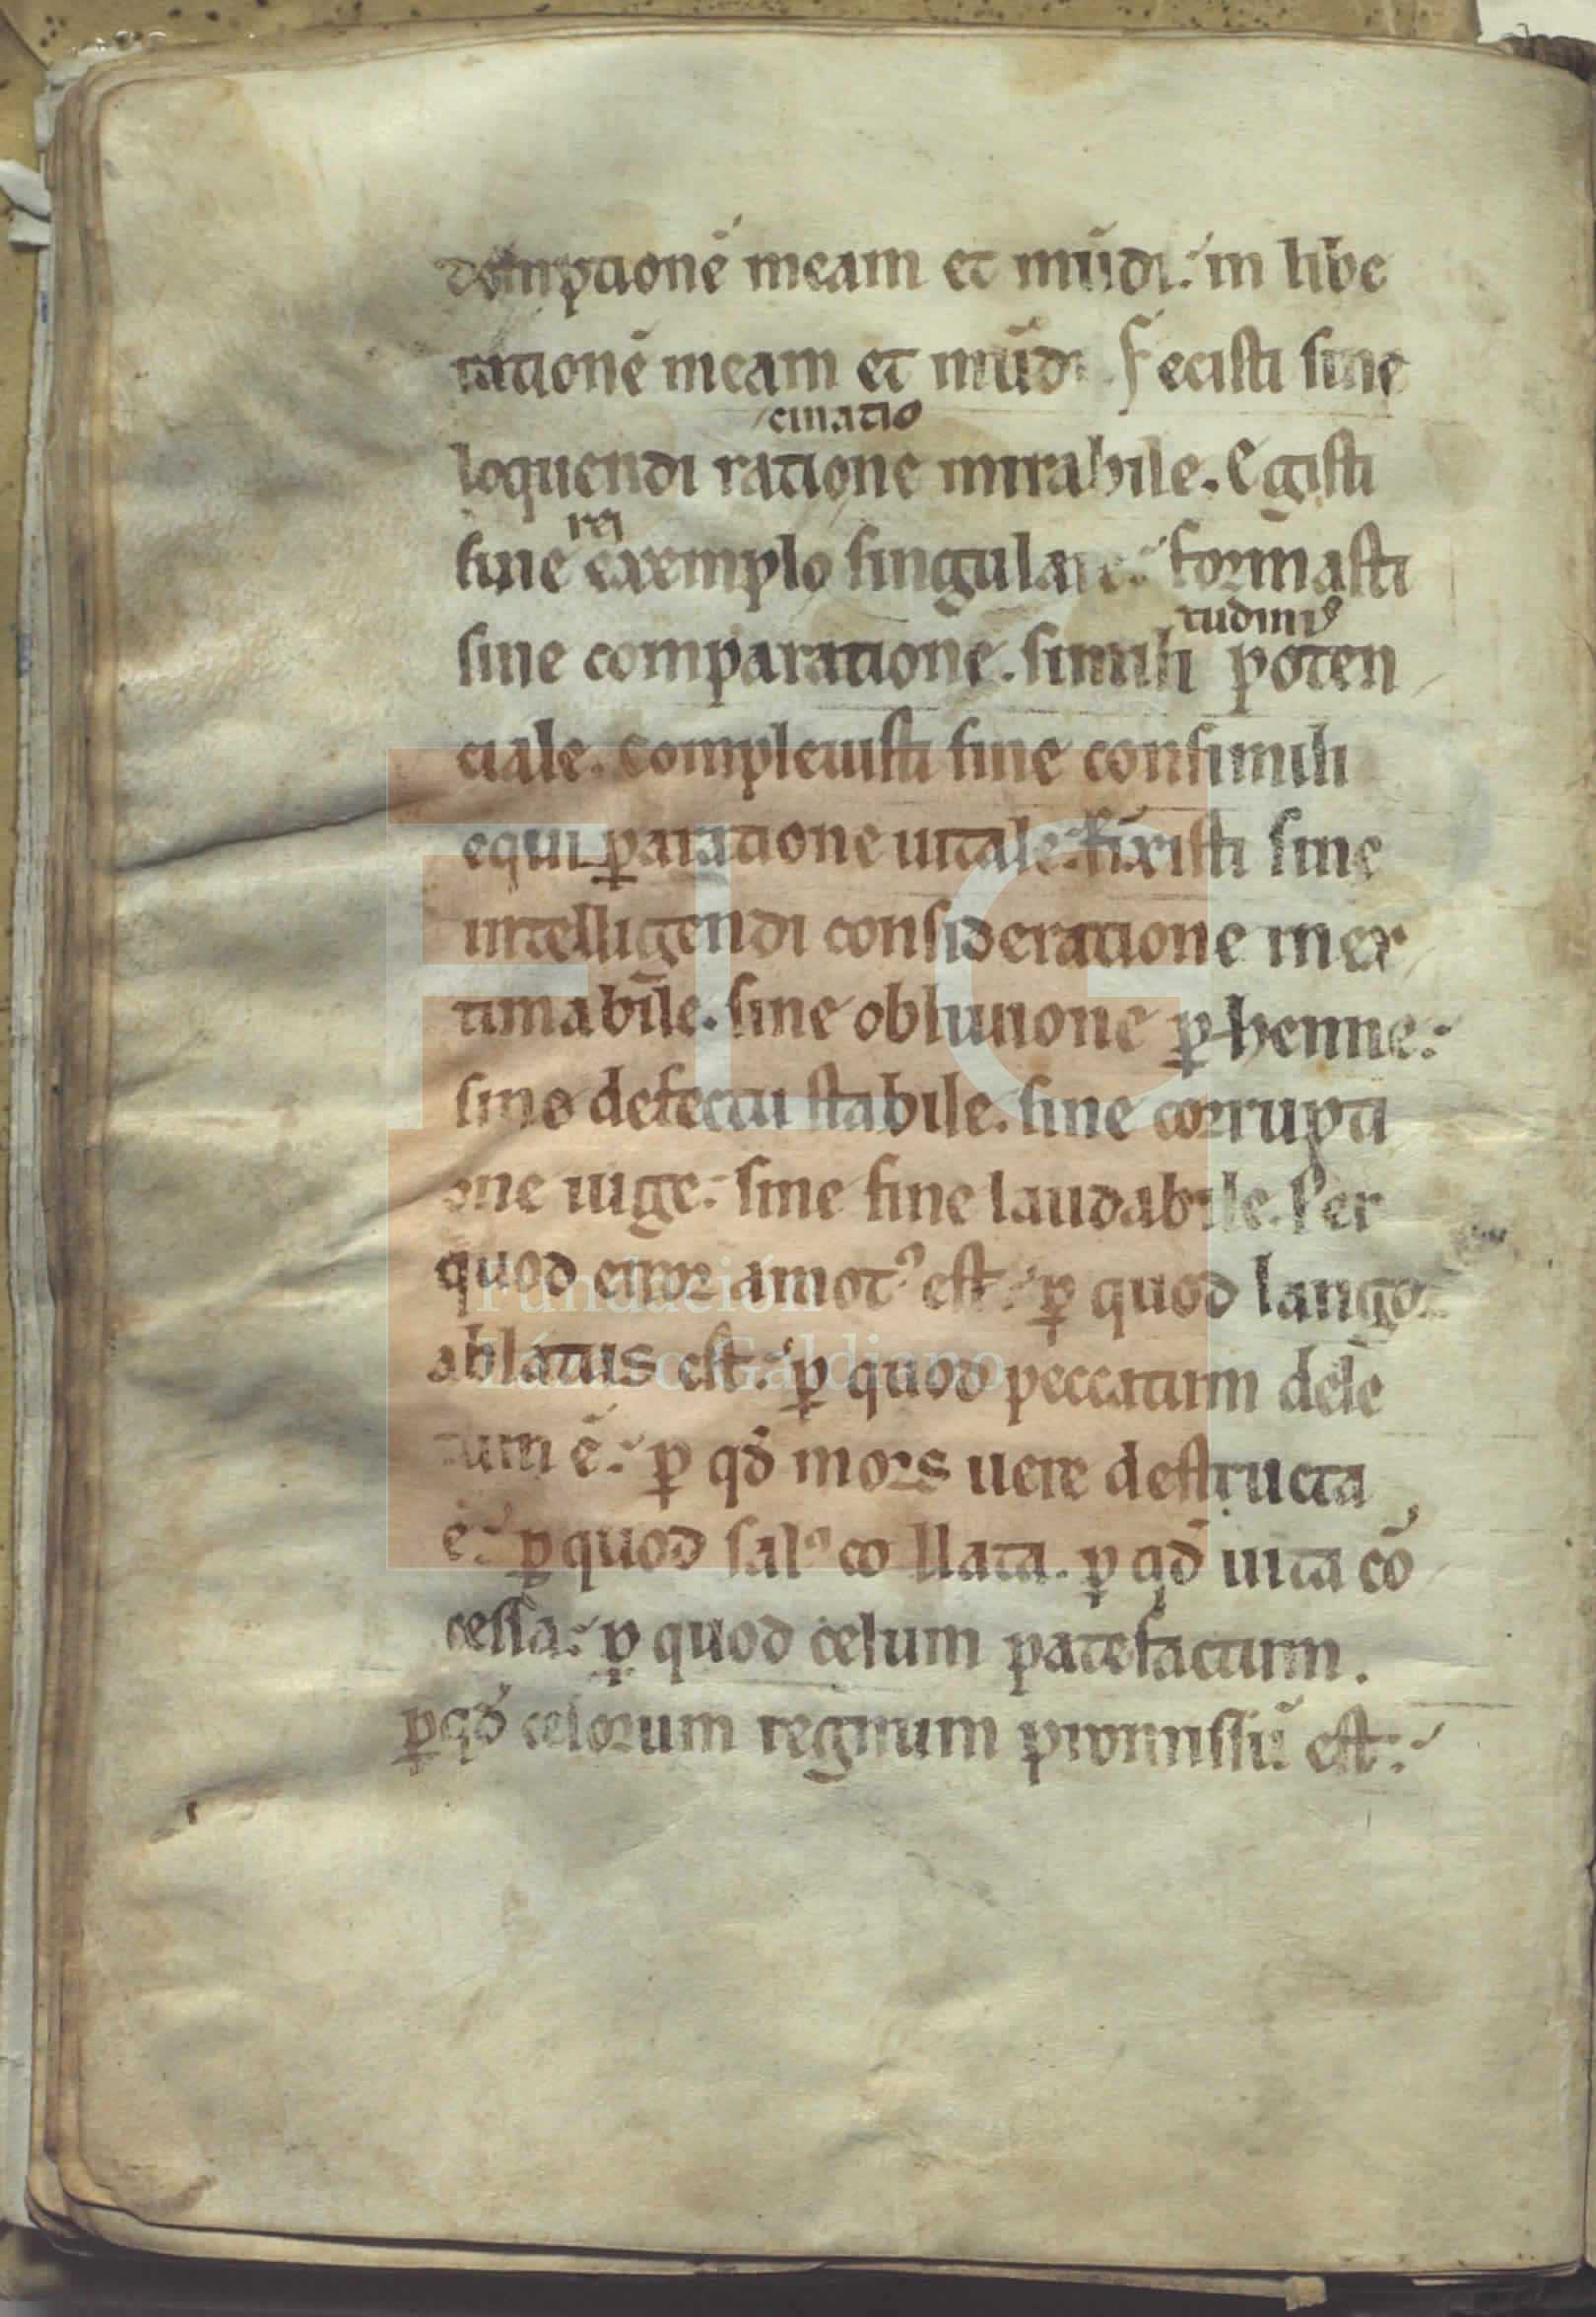 demptionē meam et mūdi. in libe
rationē meam et mūdi. Fecisti sine
cinatio
loquendi ratione mirabile. Egisti
rei
sine exemplo singulare. formasti
tudinis
sine comparatione. simili poten
ciale. compleuisti sine consimili
equi ꝑaratione uitale. fixisti sine
intelligendi consideratione inex
timabile. sine obliuione ꝑhenne.
sine defectu stabile. sine corrupti
one iuge. sine fine laudabile. Per
quod error amotꝰ est. ꝑ quod langor
ablatus est. ꝑ quod peccatum dele
tum ē. ꝑ qd̄ mors uere destructa
ē. ꝑ quod salꝰ collata. ꝑ qd̄ uita cō
cessa. ꝑ quod celum patefactum.
ꝑ qd̄ celorum regnum promissū est.
FLG
Fundación
Lázaro Galdiano